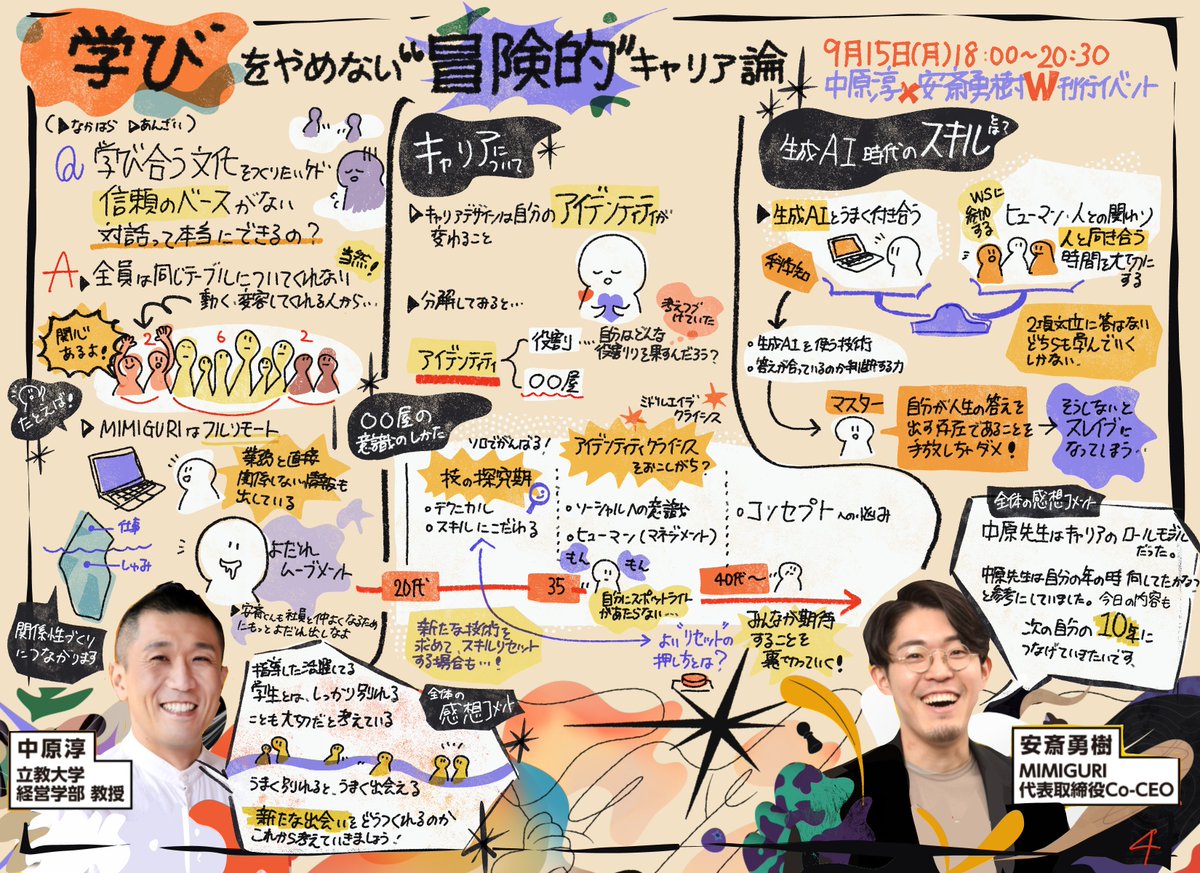 学びをやめない“冒険的”キャリア論
9月15日(月)18:00～20:30
中原淳×安斎勇樹W刊行イベント
(▶なかはら ▶あんざい)
Q 学び合う文化をつくりたいケド
信頼のベースがない
対話って本当にできるの？
当然！
A ▶全員は同じテーブルについてくれない
動く、変容してくれる人から…
関心あるよ！
2 6 2
たとえば！
▶MIMIGURIはフルリモート
業務と直接
関係しない情報も
出している
仕事
しゅみ
よだれ
ムーブメント
▶安斎くんも社員と仲よくなるため
にもっとよだれ出しなよ
関係性づくり
につながります
キャリアについて
▶キャリアデザインは自分のアイデンティティが
変わること
▶分解してみると…
考えつづ
けていた
アイデンティティ
役割…自分はどんな
役割りを果すんだろう？
〇〇屋
〇〇屋の
意識のしかた
ソロでがんばる！
技の探究期
・テクニカル
・スキルにこだわる
ミドルエイジ
クライシス
アイデンティティクライシス
をおこしがち？
・ソーシャルへの意識
・ヒューマン(マネジメント)
もん
もん
・コンセプトへの悩み
20代
35
40代～
新たな技術を
求めて、スキルリセット
する場合も…！
自分にスポットライト
があたらない…
よい“リセット”の
押し方とは？
みんなが期待
することを
裏切っていく！
生成AI時代のスキルとは？
▶生成AIとうまく付き合う
WSに
参加
する
ヒューマン・人との関わり
人と向き合う
時間を大切に
する
科学知
・生成AIを使う技術
・答えが合っているのか判断する力
2項対立に答はない
どちらも学んでいく
しかない。
マスター
自分が人生の答えを
出す存在であることを
手放しちゃダメ！
そうしないと
スレイブに
なってしまう…
全体の感想コメント
中原先生はキャリアのロールモデル
だった。
中原先生は自分の年の時何してたかな？
と参考にしていました。今日の内容も
次の自分の10年に
つなげていきたいです。
全体の
感想コメント
指導した活躍してる
学生とは、しっかり別れる
ことも大切だと考えている
うまく別れると、うまく出会える
新たな出会いをどうつくれるのか
これから考えていきましょう！
中原淳
立教大学
経営学部 教授
安斎勇樹
MIMIGURI
代表取締役Co-CEO
4